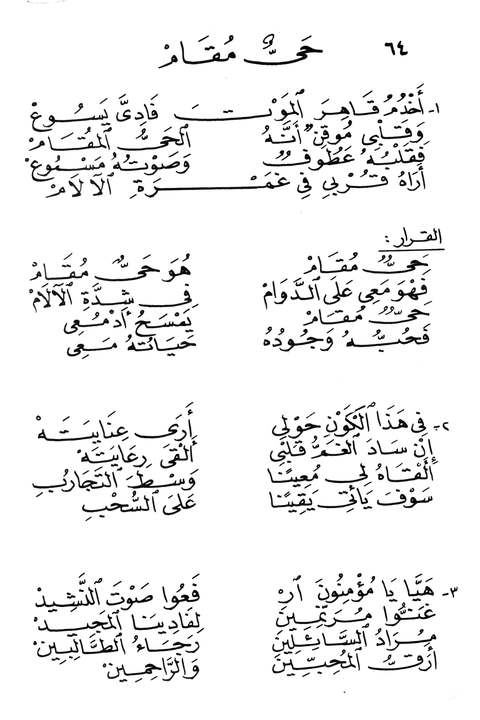 ٦٤ حَيٌّ مُقَامْ
١- أَخْدُمُ قَاهِرَ الْمَوْتِ فَادِيَّ يَسُوعْ
وَقَلْبِي مُوقِنٌ أَنَّهُ الْحَيُّ الْمُقَامْ
فَقَلْبُهُ عَطُوفٌ وَصَوْتُهُ مَسْمُوعْ
أَرَاهُ قُرْبِي فِي غَمْرَةِ الآلَامْ
القرار:
حَيٌّ مُقَامْ هُوَ حَيٌّ مُقَامْ
فَهْوَ مَعِي عَلَى الدَّوَامْ فِي شِدَّةِ الآلَامْ
حَيٌّ مُقَامْ يَمْسَحُ أَدْمُعِي
فَحُبُّهُ وَجُودُهُ حَيَاتُهُ مَعِي
٢- فِي هَذَا الْكَوْنِ حَوْلِي أَرَى عِنَايَتَهْ
إِنْ سَادَ الْغَمُّ قَلْبِي أَلْقَى رِعَايَتَهْ
أَلْقَاهُ لِي مُعِينًا وَسْطَ التَّجَارُبِ
سَوْفَ يَأْتِي يَقِينًا عَلَى السُّحْبِ
٣- هَيَّا يَا مُؤْمِنُونَ ارْفَعُوا صَوْتَ النَّشِيدْ
غَنُّوا مُرَنِّمِينَ لِفَادِينَا الْمَجِيدْ
مُرَادُ السَّائِلِينَ رَجَاءُ الطَّالِبِينْ
أَرَقُّ الْمُحِبِّينَ وَالرَّاحِمِينْ